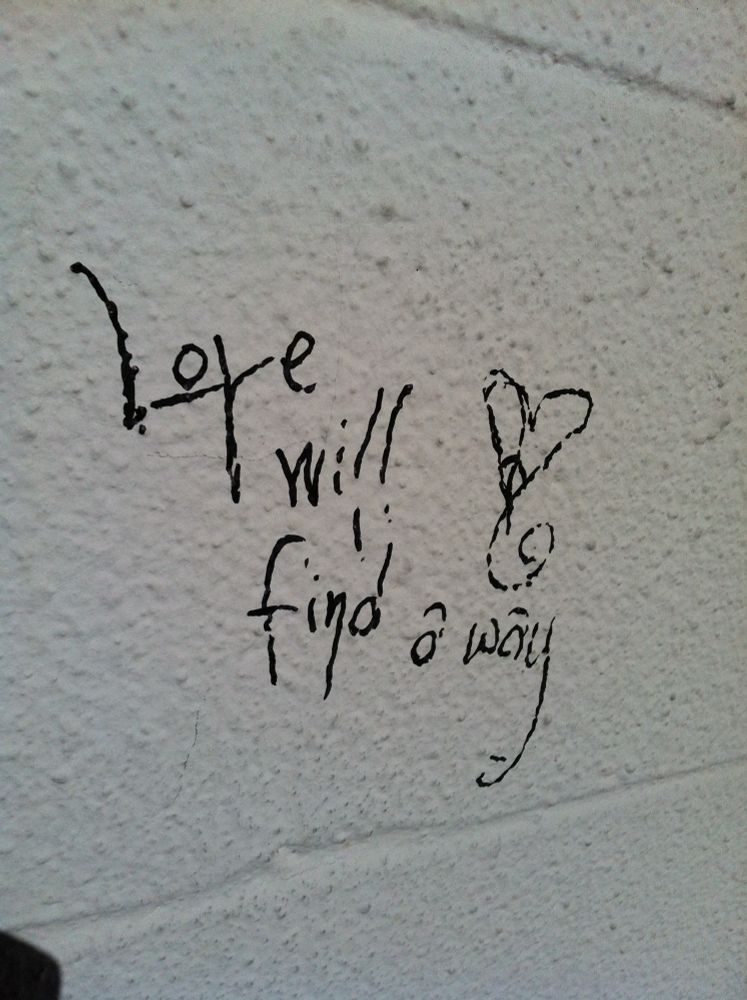 Love
will
find a way